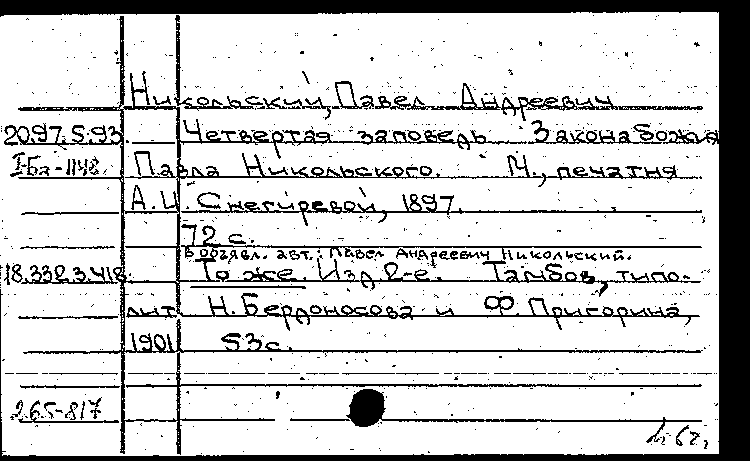 Никольский, Павел Андреевич
20.97.5.93. Четвертая заповедь Закона божия
I-Ба-1148 Павла Никольского. М., печатня
А.И. Снегиревой, 1897.
72 с.
В объявл. авт.: Павел Андреевич Никольский.
18.332.3.418. То же. Изд. 2-е. Тамбов, типо-
лит. Н. Бердоносова и Ф. Пригорина,
1901 53 с.
265-817